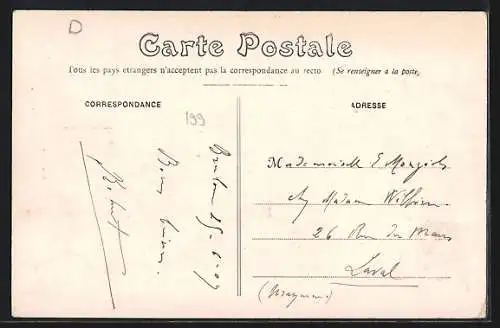 D
Carte Postale
Tous les pays étrangers n'acceptent pas la correspondance au recto (Se renseigner à la poste)
CORRESPONDANCE
ADRESSE
199
15-6-09
Bons
Mademoiselle E.
Chez Madame
26 Rue du Mans
Laval
(Mayenne)